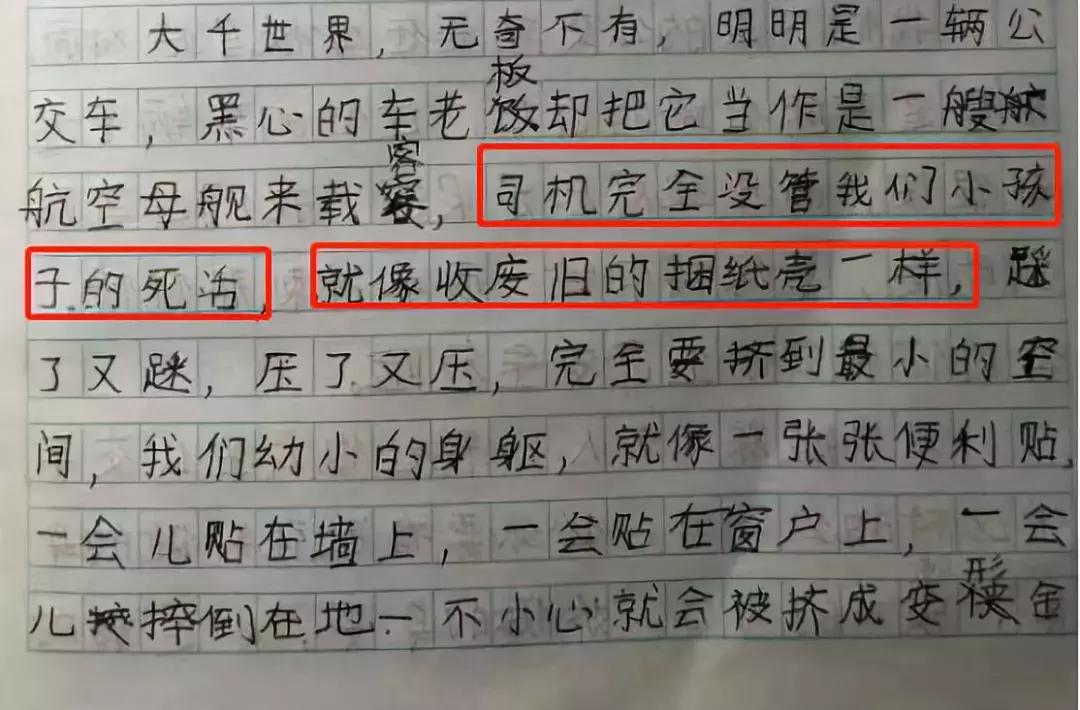 大千世界，无奇不有，明明是一辆公
交车，黑心的车老板却把它当作是一艘
航空母舰来载客，司机完全没管我们小孩
子的死活，就像收废旧的捆纸壳一样，踩
了又踩，压了又压，完全要挤到最小的空
间，我们幼小的身躯，就像一张张便利贴，
一会儿贴在墙上，一会贴在窗户上，一会
儿摔倒在地一不小心就会被挤成变形金